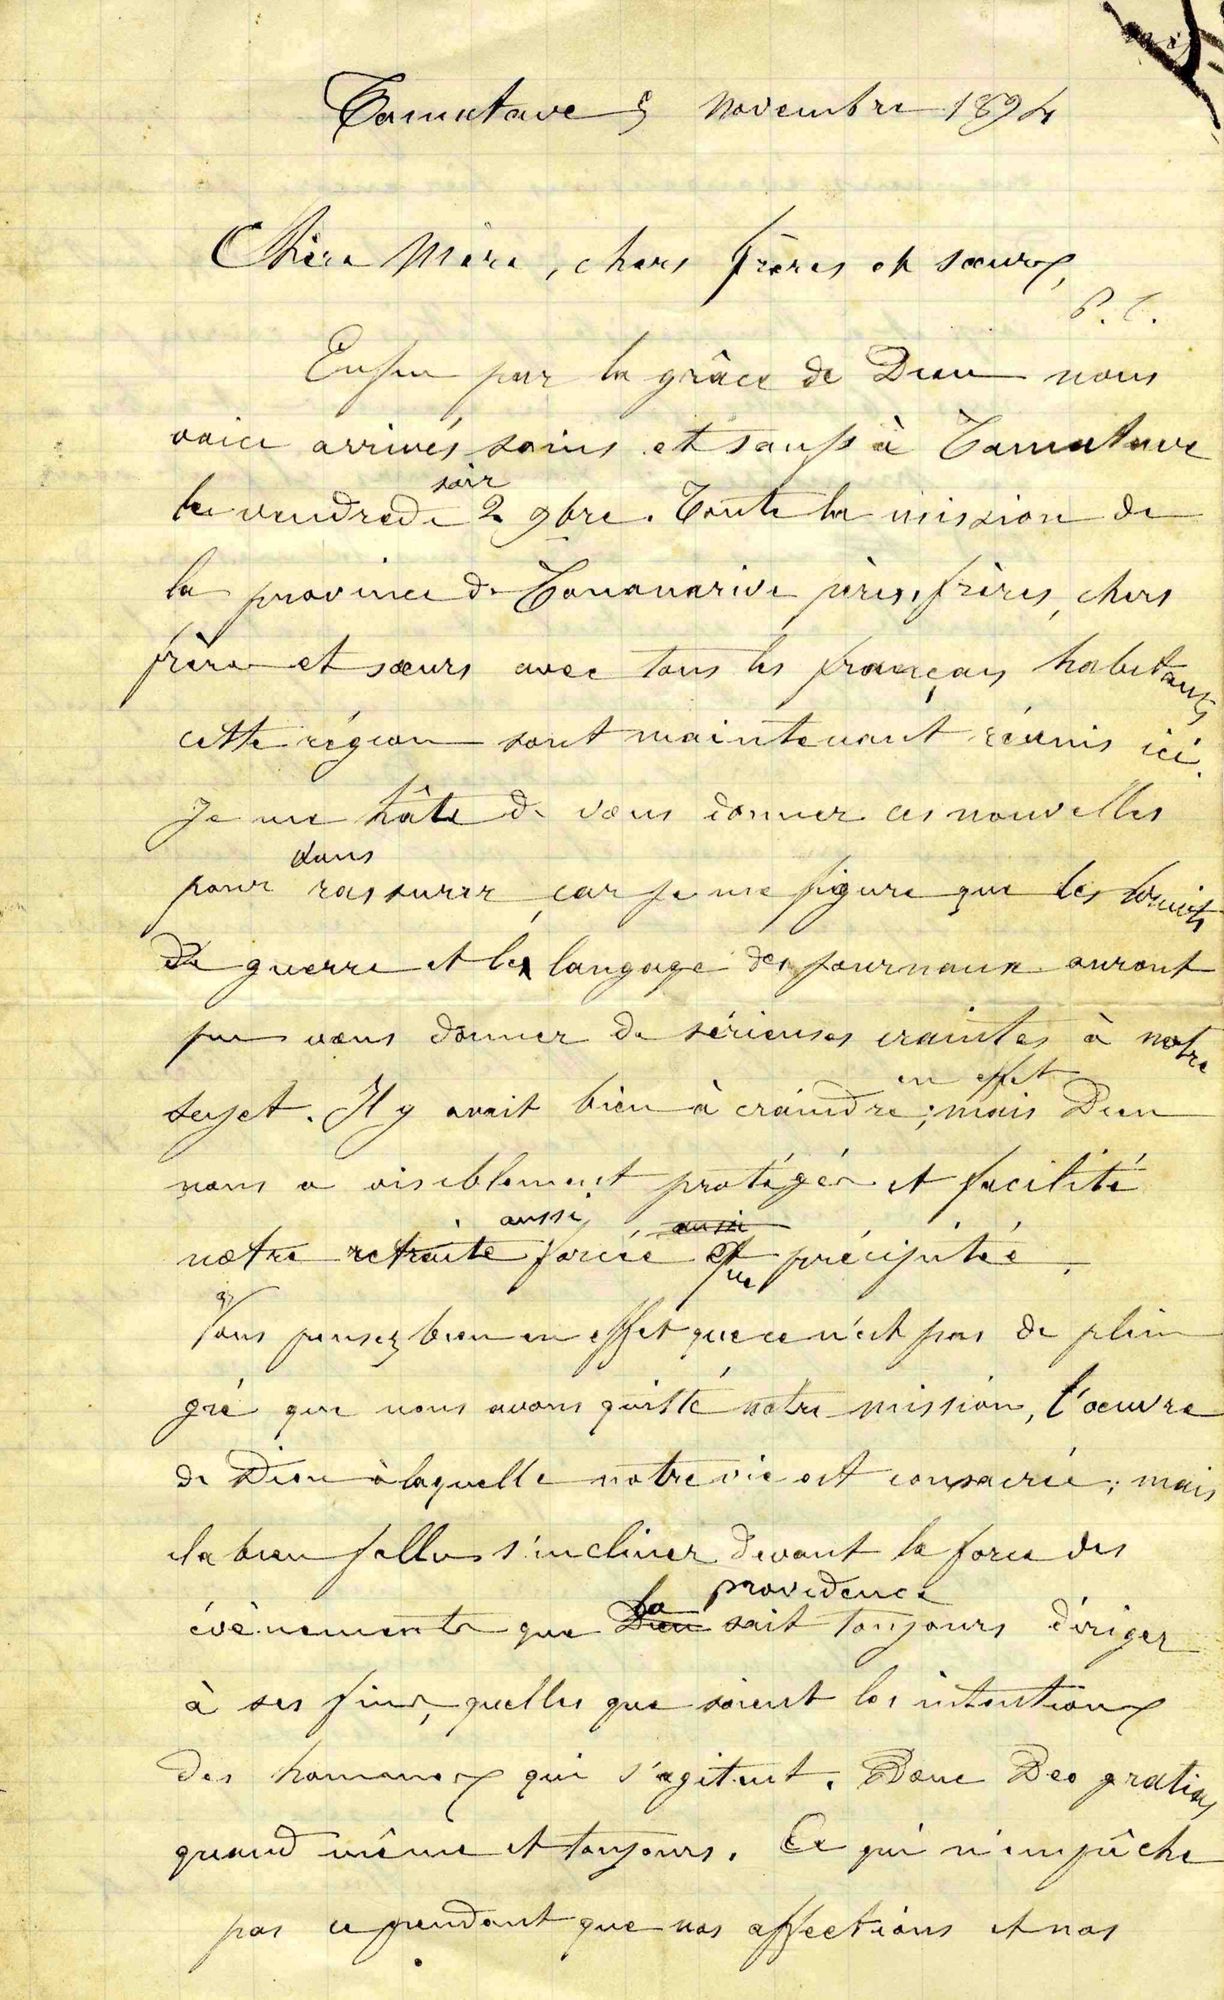 Tamatave 5 novembre 1894
Chère Mère, chers frères et sœurs,
P. C.
Enfin par la grâce de Dieu nous
voici arrivés sains et saufs à Tamatave
soir
le vendredi 2 9bre. Toute la mission de
la province de Tananarive pères, frères, chers
frère et sœurs avec tous les français habitants
cette région sont maintenant réunis ici.
Je me hâte de vous donner ces nouvelles
vous
pour rassurer, car je me figure que les bruits
de guerre et le langage des journaux auront
pu vous donner de sérieuses craintes à notre
sujet. Il y avait bien à craindre; mais Dieu
en effet
nous a visiblement protégés et facilité
aussi aussi
notre retraite forcée et que précipitée.
Vous pensez bien en effet que ce n'est pas de plein
gré que nous avons quitté notre mission, l'œuvre
de Dieu à laquelle notre vie est consacrée; mais
il a bien fallu s'incliner devant la force des
la providence
évènements que Dieu sait toujours diriger
à ses fins, quelles que soient les intentions
des hommes qui s'agitent. Donc Deo gratias
quand même et toujours. Ce qui n'empêche
pas cependant que nos affections et nos